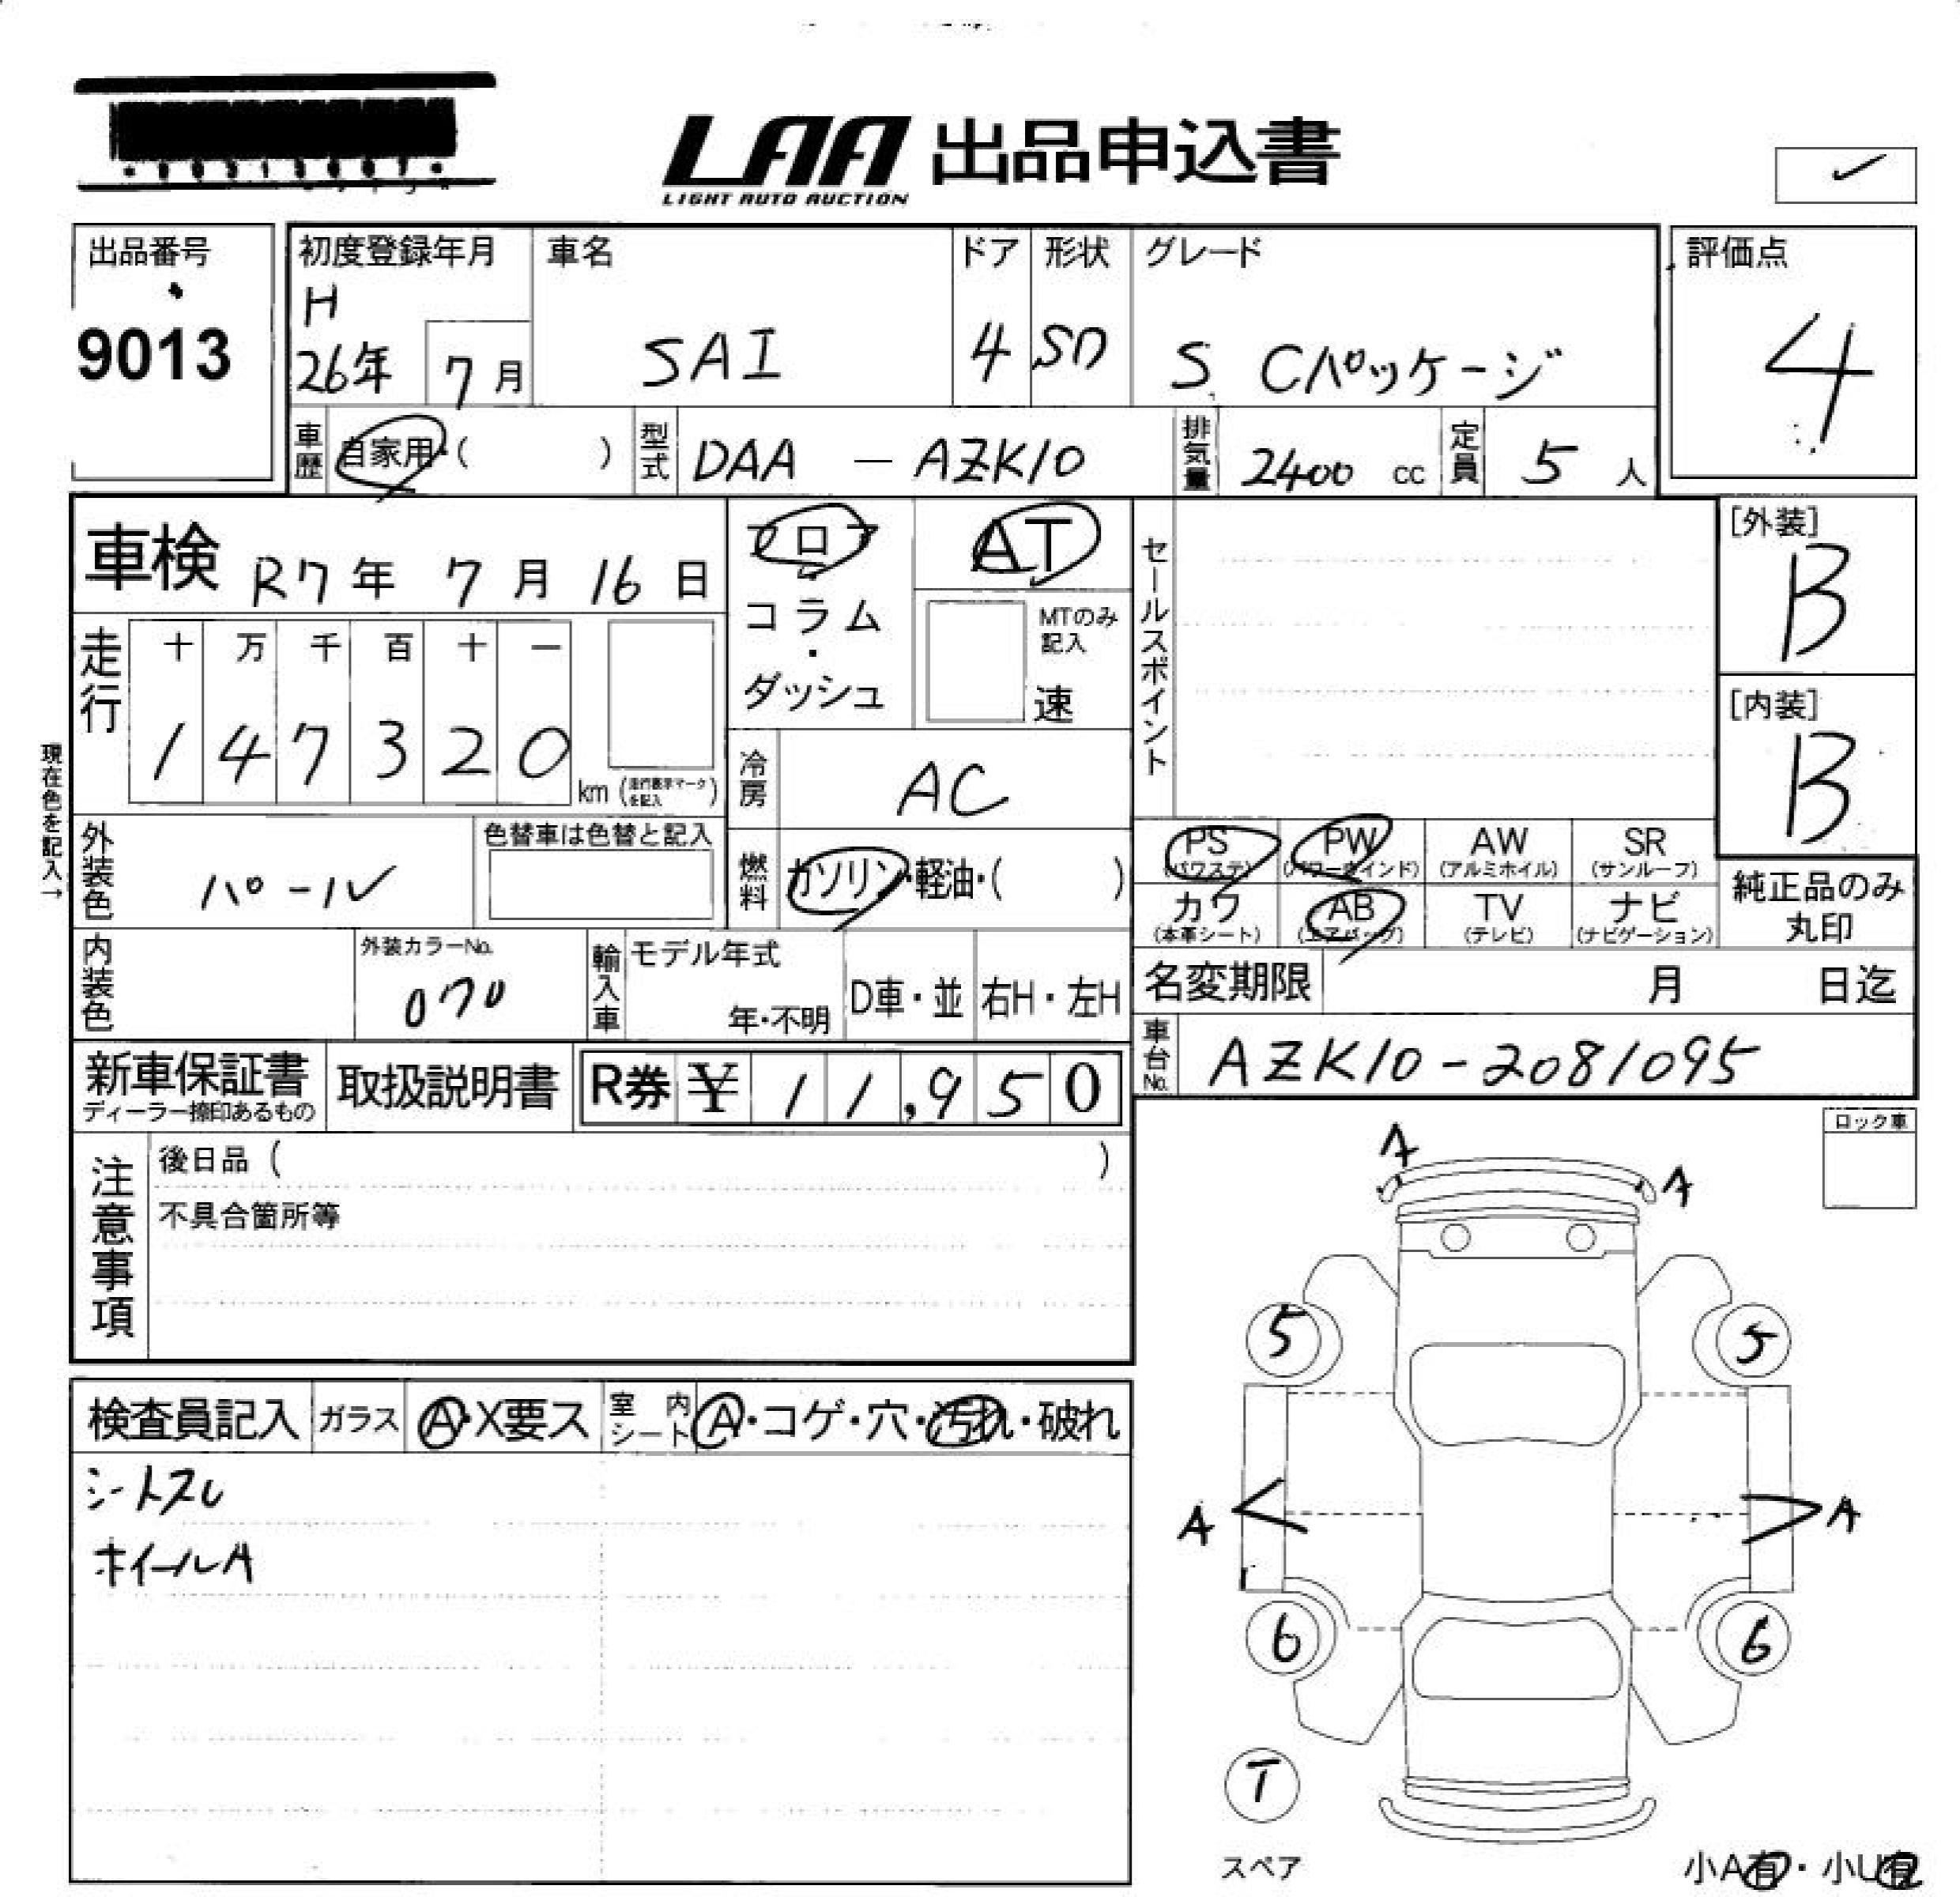 LAA 出品申込書
LIGHT AUTO AUCTION
出品番号
9013
初度登録年月
H
26年 7月
車名
SAI
ドア
4
形状
SD
グレード
S Cパッケージ
評価点
4
車歴 自家用・( )
型式 DAA - AZK10
排気量 2400 cc
定員 5 人
車検 R7年 7月 16日
フロア・コラム・ダッシュ
AT
MTのみ記入
速
セールスポイント
[外装]
B
[内装]
B
走行
十 万 千 百 十 一
1 4 7 3 2 0 km (走行表示マークを記入)
現在色を記入→
冷房 AC
外装色 パール
色替車は色替と記入
燃料 ガソリン・軽油・( )
PS (パワステ)
PW (パワーウインド)
AW (アルミホイル)
SR (サンルーフ)
カワ (本革シート)
AB (エアバッグ)
TV (テレビ)
ナビ (ナビゲーション)
純正品のみ丸印
内装色
外装カラーNo.
070
輸入車
モデル年式
年・不明
D車・並
右H・左H
名変期限 月 日迄
車台No. AZK10-2081095
新車保証書
ディーラー捺印あるもの
取扱説明書
R券 ¥ 11,950
注意事項
後日品 ( )
不具合箇所等
ロック車
A
A
5
5
検査員記入
ガラス A・X要ス
室内シート A・コゲ・穴・汚れ・破れ
シートスレ
ホイールA
A
A
6
6
T
スペア
小A有・小U有